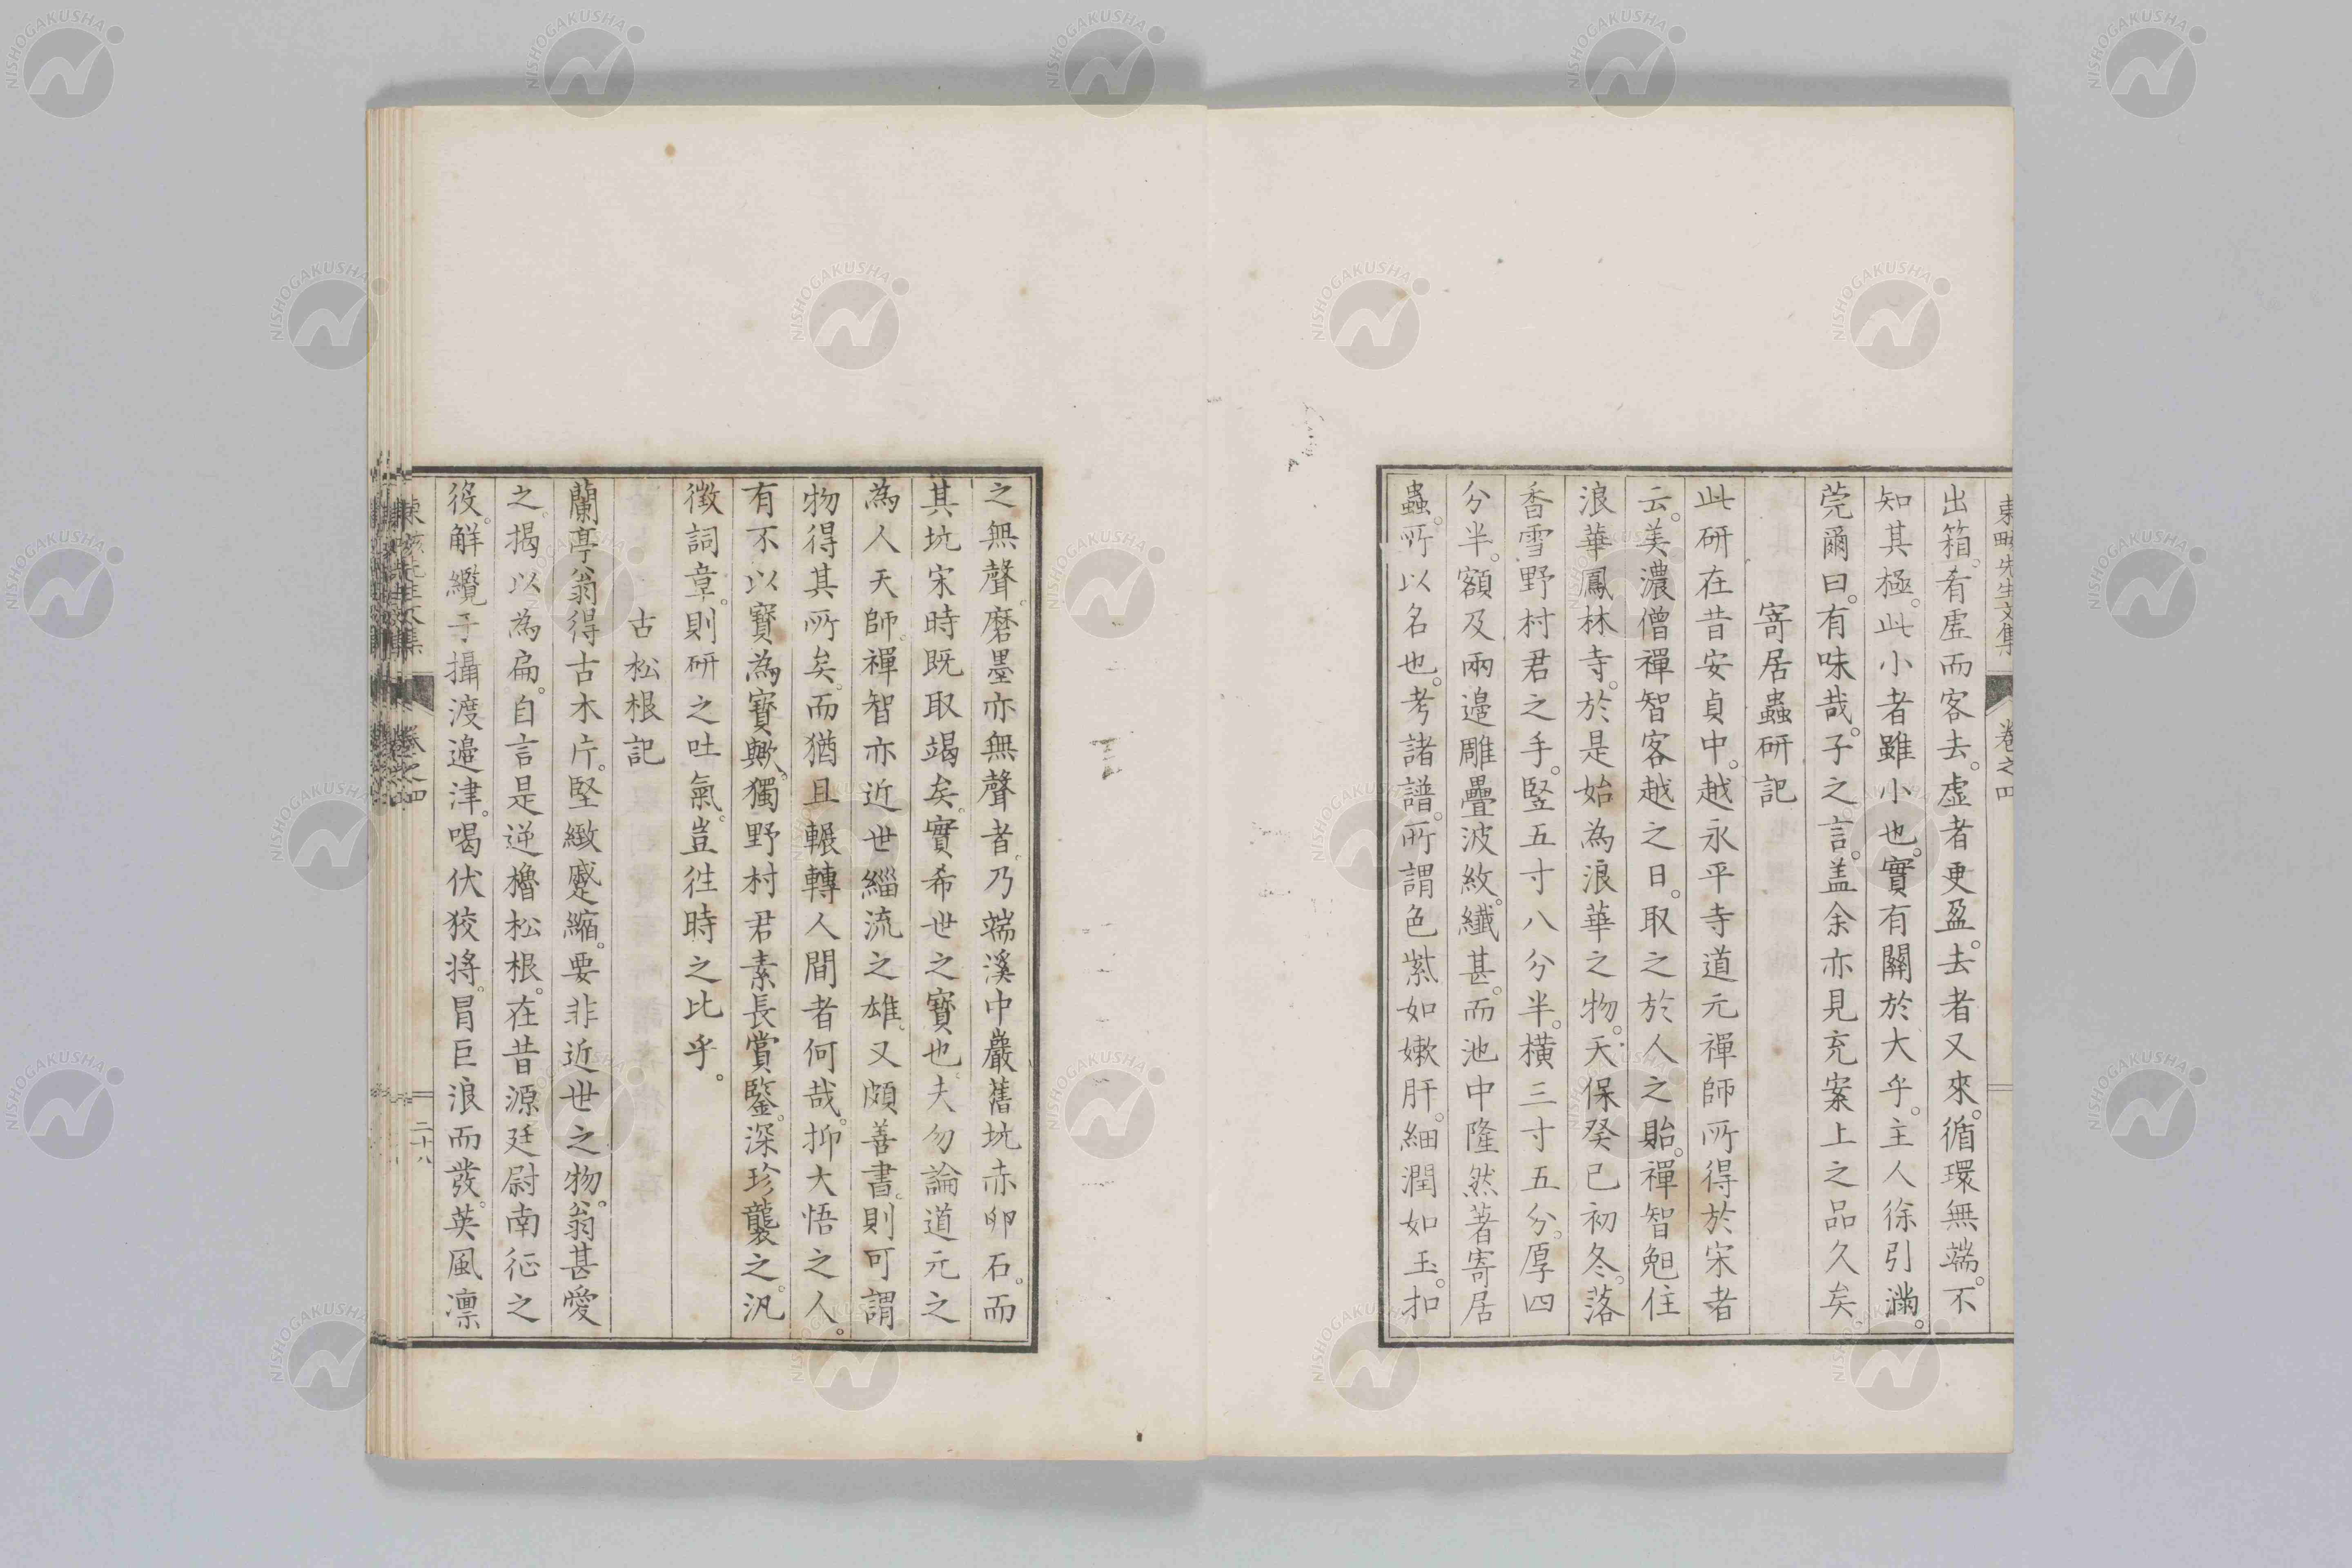 出箱。肴虛而客去。虛者更盈。去者又來。循環無端。不
知其極。此小者雖小也。實有關於大乎。主人徐引滿。
莞爾曰。有味哉。子之言。盖余亦見充案上之品久矣
寄居蟲研記
此研在昔安貞中。越永平寺道元禪師所得於宋者
云。美濃僧禪智客越之日。取之於人之貽。禪智。住
浪華鳳林寺。於是始為浪華之物。天保癸巳初冬。落
香雪野村君之手。竪五寸八分半。橫三寸五分。厚四
分半。額及兩邉雕疊波紋。纖甚。而池中隆然著寄居
蟲。所以名也。考諸譜。所謂色紫如嫩肝。細潤如玉。扣
之無聲。磨墨亦無聲者。乃端溪中巖舊坑赤卵石。而
其坑宋時既取竭矣。實希世之寶也。夫勿論道元之
為人天師。禪智亦近世緇流之雄。又頗善書。則可謂
物得其所矣。而猶且輾轉人間者何哉。抑大悟之人。
有不以寶為寶歟。獨野村君素長賞鑒。深珍襲之。汎
徵詞章。則研之吐氣。豈徃時之比乎。
古松根記
蘭亭翁得古木片。堅緻蹙縮。要非近世之物。翁甚愛
之。揭以為扁。自言是逆櫓松根。在昔源廷尉南征之
役。解纜于攝渡邉津。喝伏狡將。冒巨浪而發。英風凛
東畡先生文集
卷之四
二十八
NISHOGAKUSHA